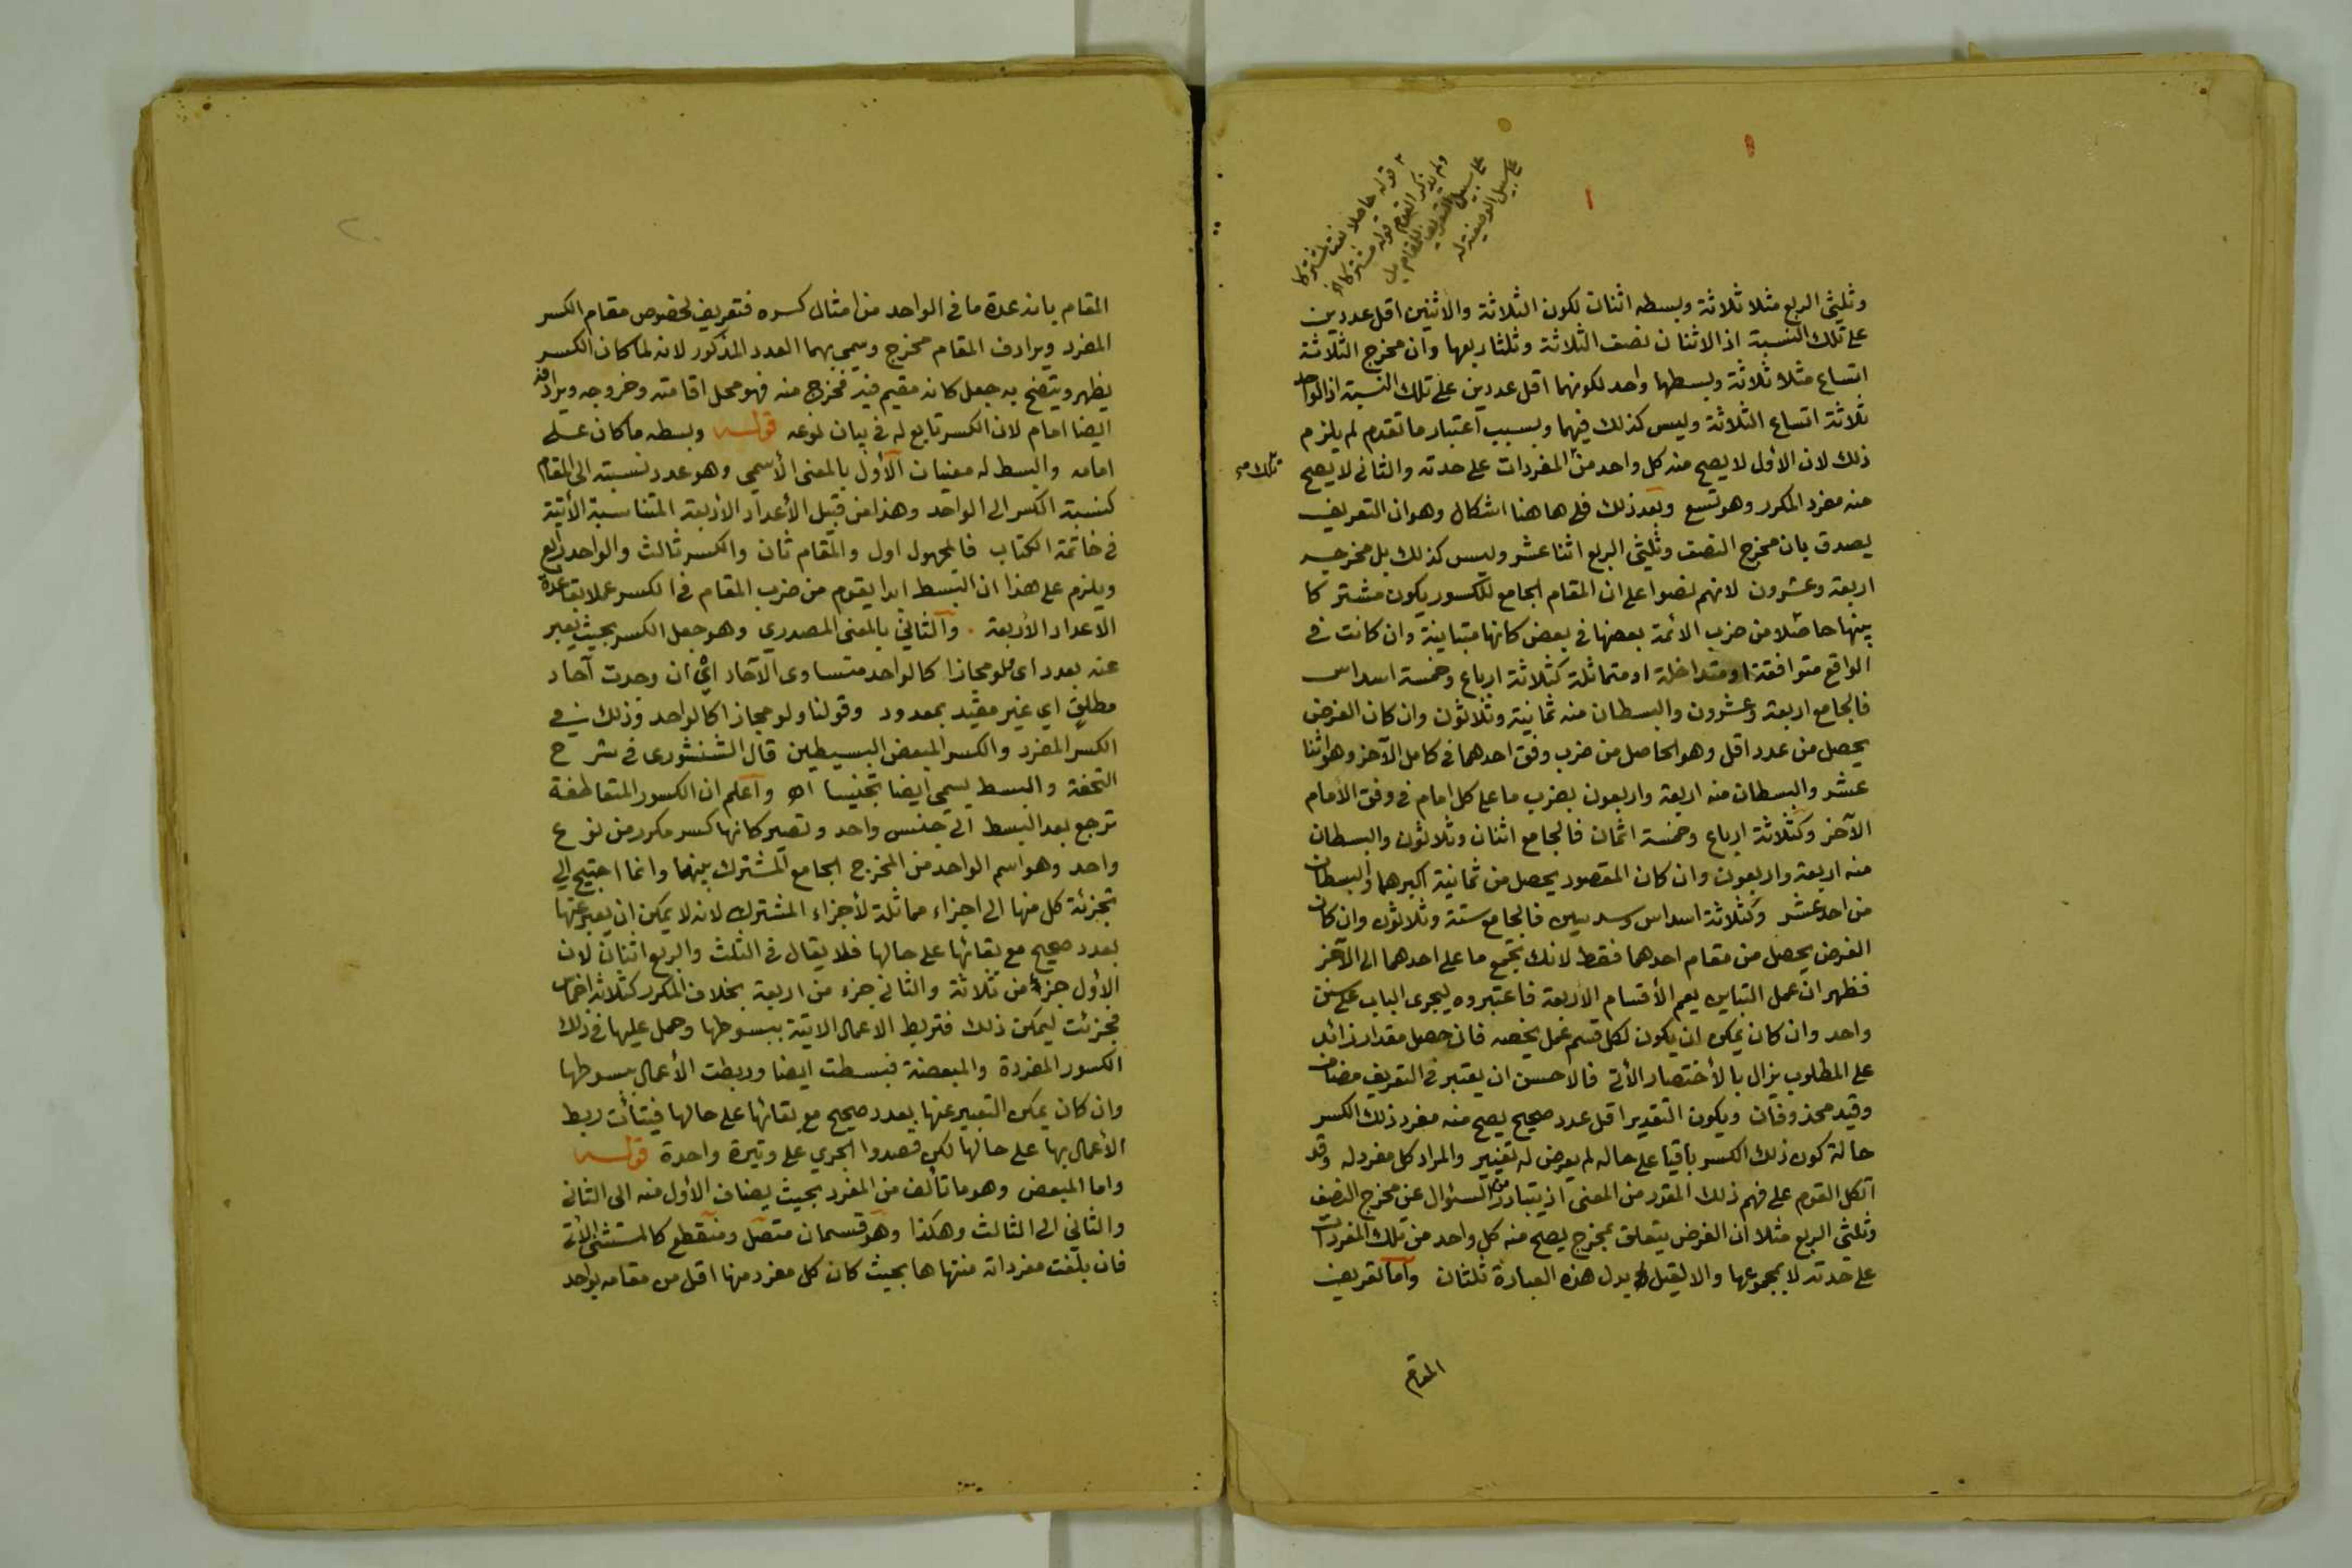 قوله حاصلا نعت لمشتركا
ولم يذكر القوم قوله مشتركا الخ
على سبيل التعريف للمقام بل
على سبيل الوصفية له
وثليثى الربع مثلا ثلاثة وبسطه اثنان لكون الثلاثة والاثنين اقل عددين
على تلك النسبة اذ الاثنان نصف الثلاثة وثلثا ربعها وان مخرج الثلاثة
اتساع مثلا ثلاثة وبسطها واحد لكونهما اقل عددين على تلك النسبة اذ الواحد
ثلاثة اتساع الثلاثة وليس كذلك فيهما وبسبب اعتبار ما تقدم لم يلزم
ذلك لان الأول لا يصح منه كل واحد من المفردات على حدته والثانى لا يصح
تلك صح
منه مفرد المكرر وهو تسع وبعد ذلك فلى هاهنا اشكال وهو ان التعريف
يصدق بان مخرج النصف وثليثى الربع اثنا عشر وليس كذلك بل مخرجه
اربعة وعشرون لانهم نصوا على ان المقام الجامع للكسور يكون مشتركا
بينها حاصلا من ضرب الائمة بعضها فى بعض كانها متباينة وان كانت فى
الواقع متوافقة او متداخلة او متماثلة كثلاثة ارباع وخمسة اسداس
فالجامع اربعة وعشرون والبسطان منه ثمانية وثلاثون وان كان الغرض
يحصل من عدد اقل وهو الحاصل من ضرب وفق احدهما فى كامل الآخر وهو اثنا
عشر والبسطان منه اربعة واربعون بضرب ما على كل امام فى وفق الأمام
الآخر وكثلاثة ارباع وخمسة اثمان فالجامع اثنان وثلاثون والبسطان
منه اربعة واربعون وان كان المقصود يحصل من ثمانية اكبرهما والبسطان
من احد عشر وكثلاثة اسداس وسدسين فالجامع ستة وثلاثون وان كان
الغرض يحصل من مقام احدهما فقط لانك تجمع ما على احدهما الى الآخر
فظهر ان عمل التباين يعم الأقسام الأربعة فاعتبروه ليجرى الباب على سنن
واحد وان كان يمكن ان يكون لكل قسم عمل يخصه فان حصل مقدار زائد
على المطلوب يزال بالأختصار الأتى فالاحسن ان يعتبر فى التعريف مضافان
وقيد محذوفان ويكون التقدير اقل عدد صحيح يصح منه مفرد ذلك الكسر
حالة كون ذلك الكسر باقيا على حاله لم يعرض له تغيير والمراد كل مفرد له وقد
اتكل القوم على فهم ذلك المقدر من المعنى اذ يتبادر من السئوال عن مخرج النصف
وثلثى الربع مثلا ان الغرض يتعلق بمخرج يصح منه كل واحد من تلك المفردات
على حدته لا بمجموعها والا لقيل بدل هذه العبارة ثلثان واما تعريف
المقام
المقام بانه عدة ما فى الواحد من امثال كسره فتعريف لخصوص مقام الكسر
المفرد ويرادف المقام مخرج وسمى بهما العدد المذكور لانه لما كان الكسر
يظهر ويتضح به جعل كانه مقيم فيه فخرج منه فهو محل اقامته وخروجه ويرادفه
ايضا امام لان الكسر تابع له فى بيان نوعه قوله وبسطه ما كان على
امامه والبسط له معنيان الأول بالمعنى الأسمى وهو عدد نسبته الى المقام
كنسبة الكسر الى الواحد وهذا من قبيل الأعداد الأربعة المتناسبة الأتية
فى خاتمة الكتاب فالمجهول اول والمقام ثان والكسر ثالث والواحد رابع
ويلزم على هذا ان البسط ابدا يقوم من ضرب المقام فى الكسر عملا بقاعدة
الاعداد الأربعة . والثانى بالمعنى المصدرى وهو جعل الكسر بحيث يعبر
عنه بعدد اى ولو مجازا كالواحد متساوى الآحاد اى ان وجدت آحاد
مطلق اى غير مقيد بمعدود وقولنا ولو مجازا كالواحد وذلك فى
الكسر المفرد والكسر المبعض البسيطين قال الشنشورى فى شرح
التحفة والبسط يسمى ايضا تجنيسا اه واعلم ان الكسور المتعاطفة
ترجع بعد البسط الى جنس واحد وتصير كانها كسر مكرر من نوع
واحد وهو اسم الواحد من المخرج الجامع المشترك بينها وانما احتيج الى
تجزئة كل منها الى اجزاء مماثلة لأجزاء المشترك لانه لا يمكن ان يعبر عنها
بعدد صحيح مع بقائها على حالها فلا يقال فى الثلث والربع اثنان لان
الأول جزء من ثلاثة والثانى جزء من اربعة بخلاف المكرر كثلاثة اخماس
فجزئت ليمكن ذلك فتربط الاعمال الاتية ببسوطها وحمل عليها فى ذلك
الكسور المفردة والمبعضة فبسطت ايضا وربطت الأعمال ببسوطها
وان كان يمكن التعبير عنها بعدد صحيح مع بقائها على حالها فيتأتى ربط
الأعمال بها على حالها لكن قصدوا الجرى على وتيرة واحدة قوله
واما المبعض وهو ما تألف من المفرد بحيث يضاف الأول منه الى الثانى
والثانى الى الثالث وهكذا وهو قسمان متصل ومنقطع كالمستثنى الأتى
فان بلغت مفرداته منتهاها بحيث كان كل مفرد منها اقل من مقامه بواحد